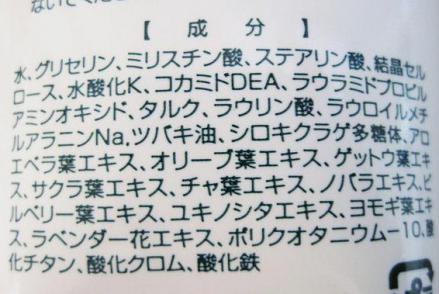 ないでください
【 成 分 】
水、グリセリン、ミリスチン酸、ステアリン酸、結晶セル
ロース、水酸化K、コカミドDEA、ラウラミドプロピル
アミンオキシド、タルク、ラウリン酸、ラウロイルメチ
ルアラニンNa、ツバキ油、シロキクラゲ多糖体、アロ
エベラ葉エキス、オリーブ葉エキス、ゲットウ葉エキ
ス、サクラ葉エキス、チャ葉エキス、ノバラエキス、ビ
ルベリー葉エキス、ユキノシタエキス、ヨモギ葉エキ
ス、ラベンダー花エキス、ポリクオタニウム-10、酸
化チタン、酸化クロム、酸化鉄